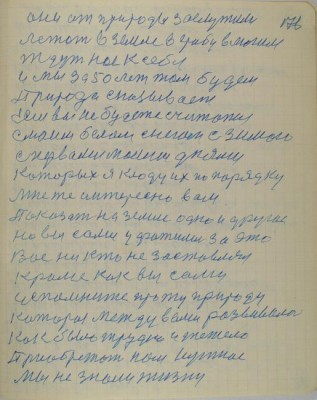 они от природы заслужили 176
лежат в земле в гробу в могили
ждут нас к себя
и мы за 50 лет там будем
Природа сказывает
Если вы не будете считатся
с моим белом снегам с Зимою
с недвами моими днями
Которых я кладу их по порядку
Мне те интересно вам
Показат на земле одно и другое
но вы сами у фатили за это
Вас ни кто не заставлял
Кроме как вы сами
исполните эту природу
Которая между вами развивалас
Как было трудно и тежело
Приобретат нам нужное
Мы не знали жизни